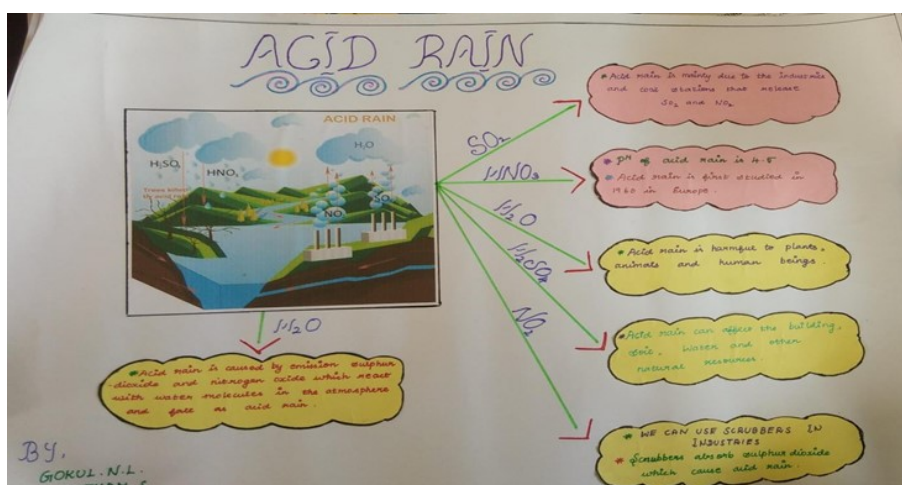 ACID RAIN
ACID RAIN
H₂SO₄
HNO₃
H₂O
NO
SO
SO₂
HNO₃
H₂O
H₂SO₄
NO₂
H₂O
* Acid rain is mainly due to the industries
and coal stations that release
SO₂ and NO₂.
* PH of acid rain is 4.5
* Acid rain is first studied in
1960 in Europe.
* Acid rain is harmful to plants,
animals and human beings.
* Acid rain can affect the building,
soil, water and other
natural resources.
* WE CAN USE SCRUBBERS IN
INDUSTRIES
* Scrubbers absorb sulphur dioxide
which cause acid rain.
* Acid rain is caused by emission sulphur
dioxide and nitrogen oxide which react
with water molecules in the atmosphere
and fall as acid rain.
BY,
GOKUL.N.L.